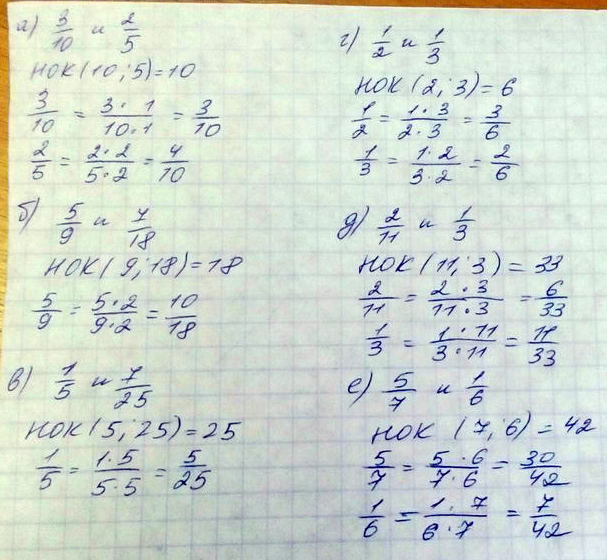 а) 3/10 и 2/5
НОК(10; 5)=10
3/10 = 3·1/10·1 = 3/10
2/5 = 2·2/5·2 = 4/10
б) 5/9 и 7/18
НОК(9; 18)=18
5/9 = 5·2/9·2 = 10/18
в) 1/5 и 7/25
НОК(5; 25)=25
1/5 = 1·5/5·5 = 5/25
г) 1/2 и 1/3
НОК(2; 3)=6
1/2 = 1·3/2·3 = 3/6
1/3 = 1·2/3·2 = 2/6
д) 2/11 и 1/3
НОК(11; 3) = 33
2/11 = 2·3/11·3 = 6/33
1/3 = 1·11/3·11 = 11/33
е) 5/7 и 1/6
НОК (7; 6) = 42
5/7 = 5·6/7·6 = 30/42
1/6 = 1·7/6·7 = 7/42